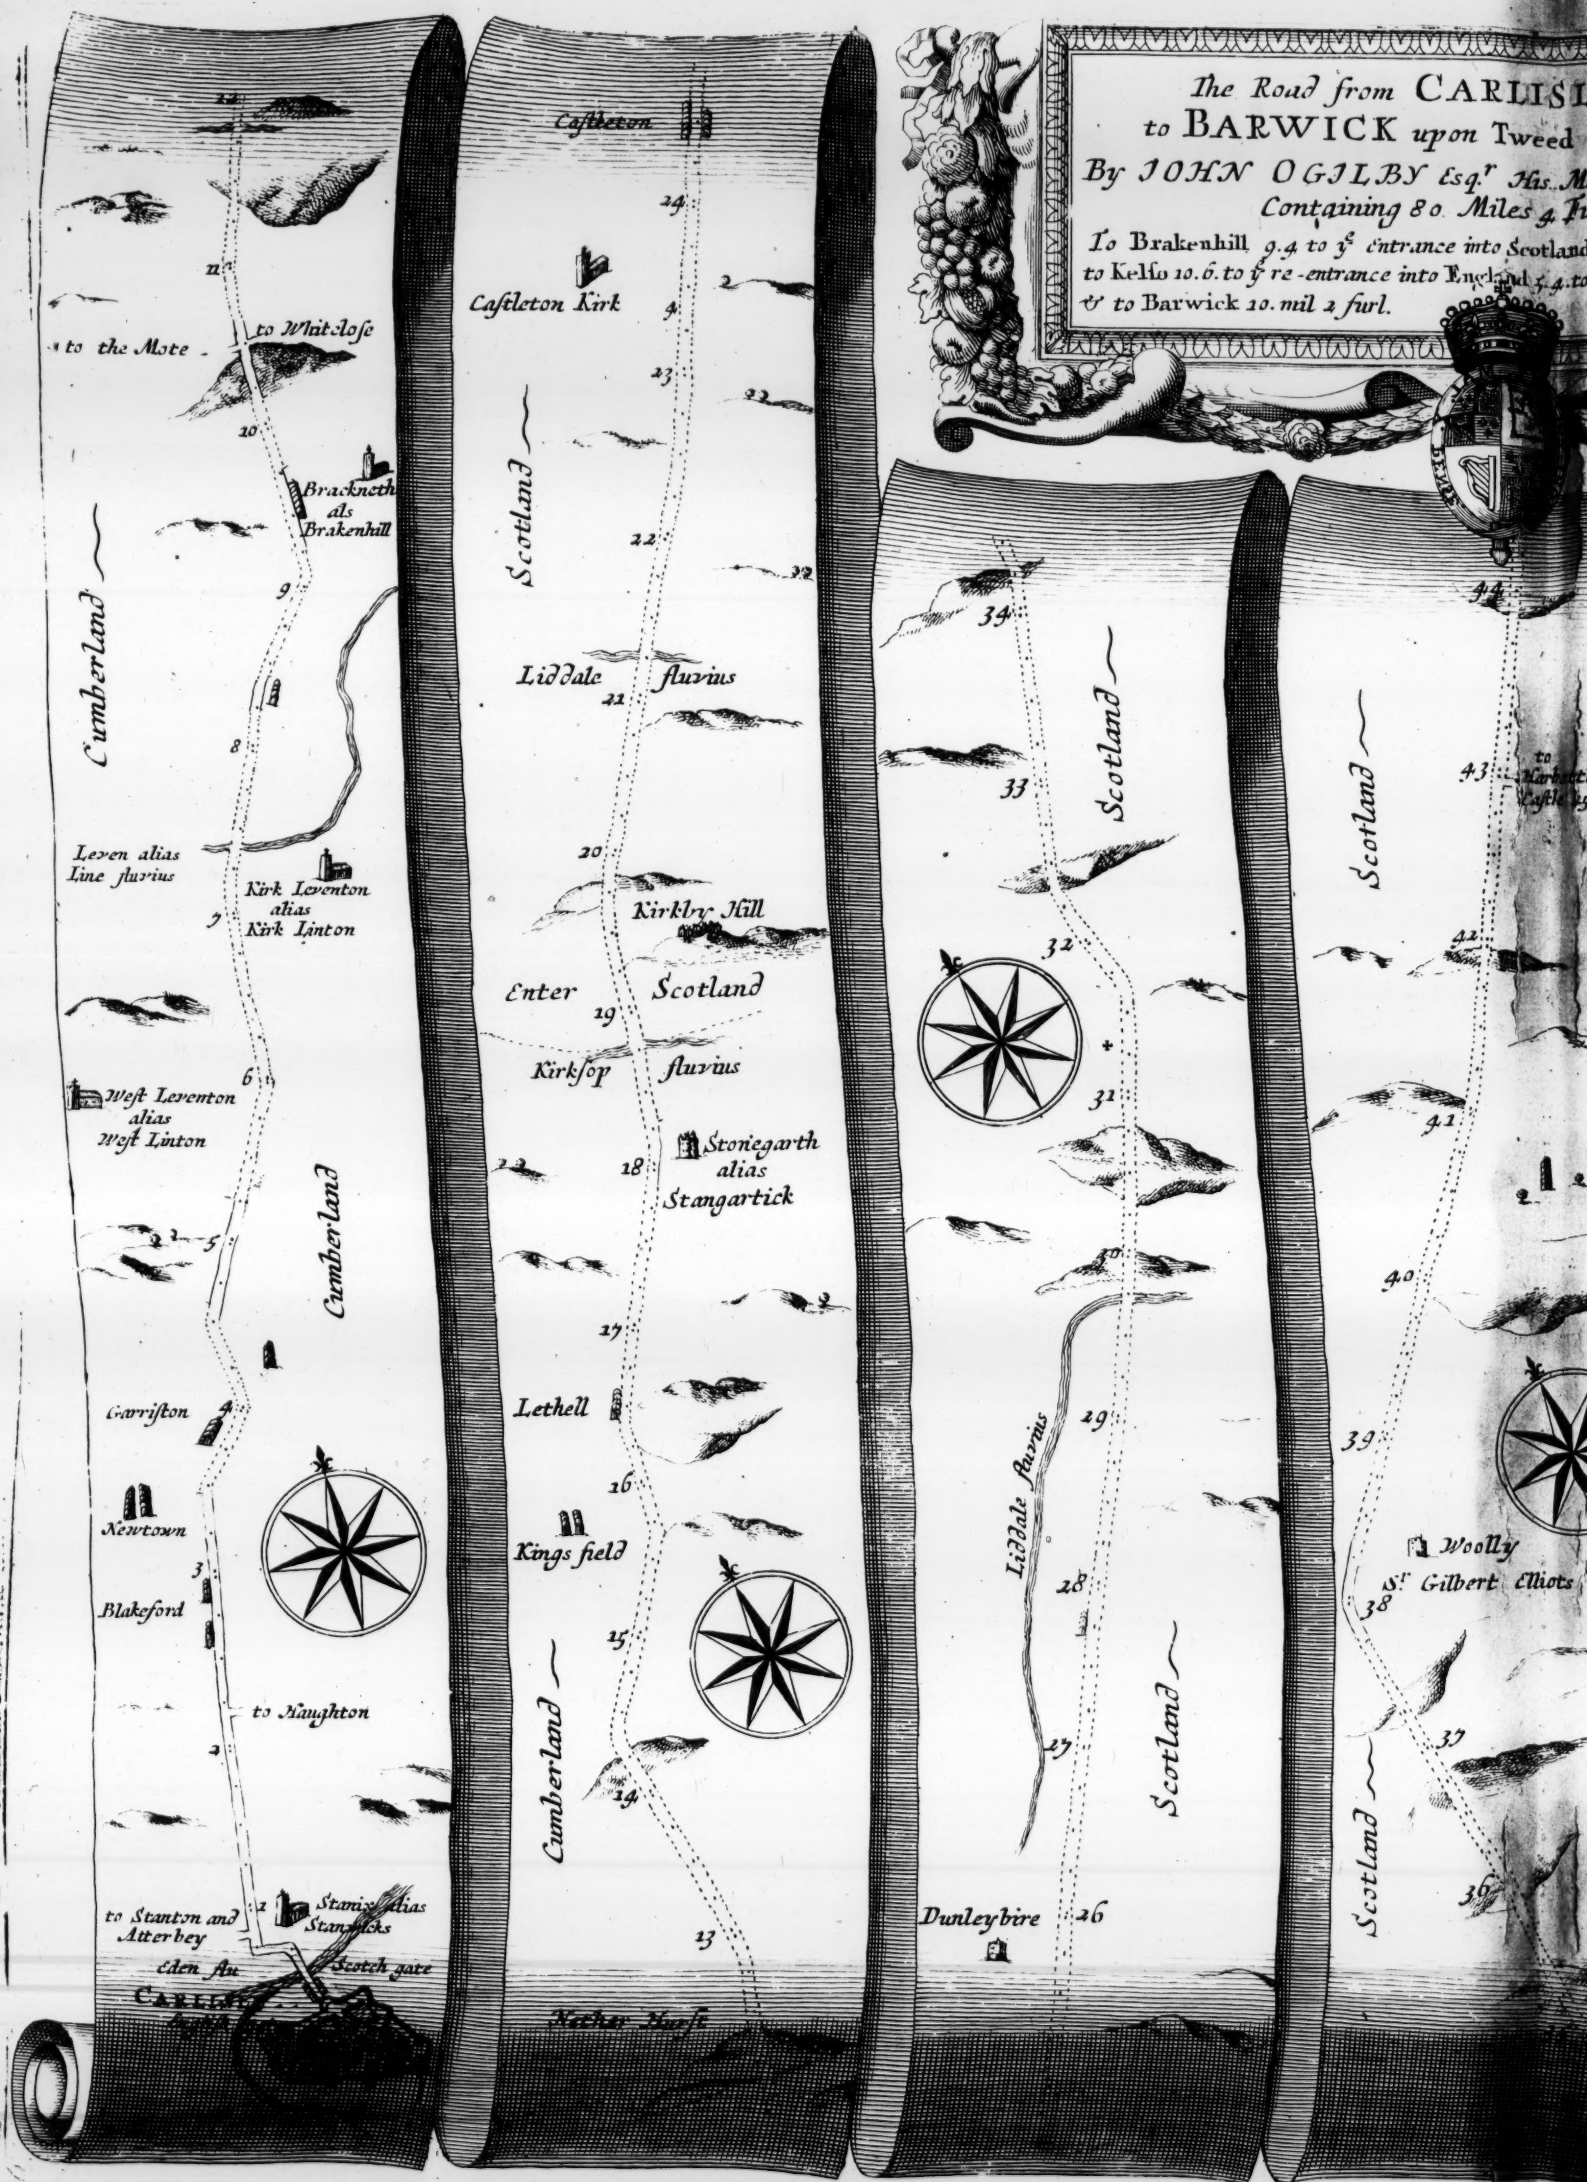 The Road from CARLISL
to BARWICK upon Tweed
By JOHN OGILBY Esq.r His M
Containing 80 Miles 4 Fu
To Brakenhill 9.4 to ye entrance into Scotland
to Kelso 10.6. to ye re-entrance into England 5.4. to
& to Barwick 10. mil 2 furl.
12
11
to the Mote
to Whitclose
10
Brackneth
als
Brakenhill
9
Cumberland
8
Leven alias
Line fluvius
Kirk Leventon
alias
Kirk Linton
7
6
West Leventon
alias
West Linton
5
Cumberland
Garriston
4
Newtown
3
Blakeford
to Haughton
2
1
Stanix alias
Stanwicks
to Stanton and
Atterbey
Eden flu
Scotch gate
CARLISLE
Castleton
24
Castleton Kirk
23
Scotland
22
Liddale fluvius
21
20
Kirkby Hill
Enter Scotland
19
Kirksop fluvius
Stonegarth
alias
Stangartick
18
17
Lethell
16
Kings field
15
Cumberland
14
13
Nether Hurst
34
Scotland
33
32
31
30
29
Liddale fluvius
28
27
Scotland
Dunleybire
26
44
43
to
Castle
Scotland
42
41
40
39
Woolly
Sr Gilbert Elliots
38
37
Scotland
36